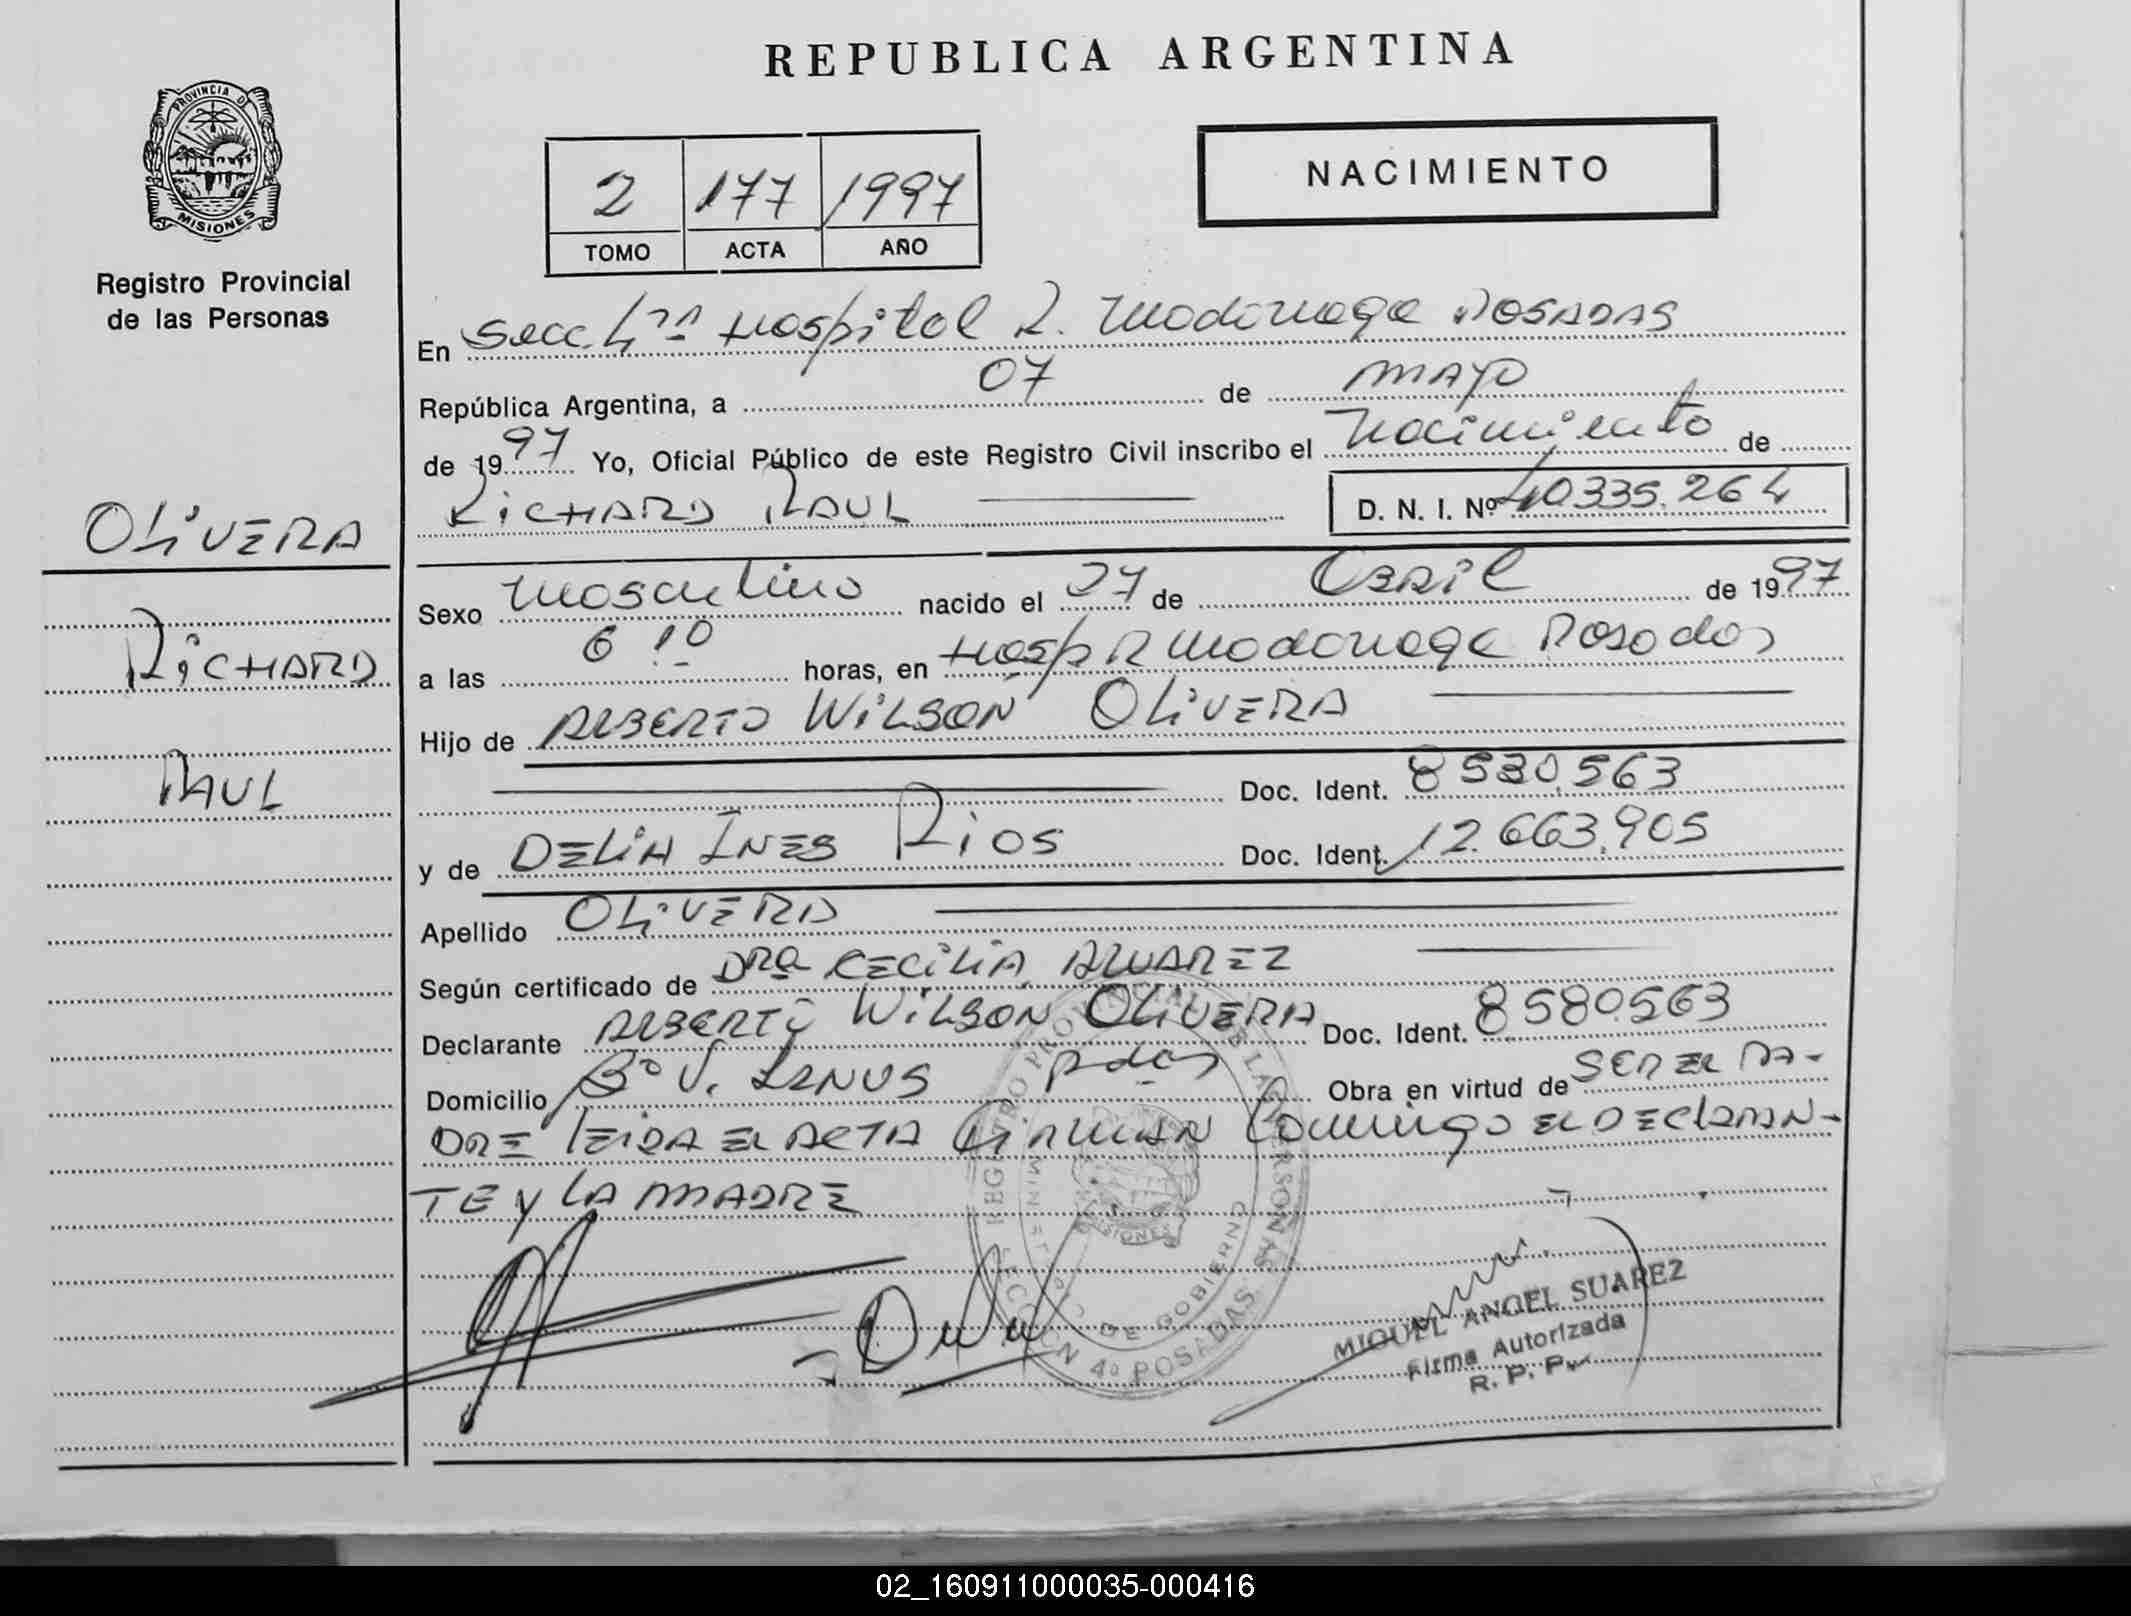 REPUBLICA ARGENTINA
PROVINCIA DE MISIONES
Registro Provincial
de las Personas
2 177 1997
TOMO ACTA AÑO
NACIMIENTO
En Secc. 4ta Hospital R. Madariaga POSADAS
República Argentina, a 07 de MAYO
de 1997 Yo, Oficial Público de este Registro Civil inscribo el Nacimiento de
RICHARD RAUL D. N. I. Nº 40.335.264
OLIVERA
RICHARD
RAUL
Sexo Masculino nacido el 27 de Abril de 1997
a las 6 10 horas, en Hosp R Madariaga Posadas
Hijo de ALBERTO WILSON OLIVERA
Doc. Ident. 8580.563
y de DELIA INES RIOS Doc. Ident. 12.663.905
Apellido OLIVERA
Según certificado de DRa CECILIA ALVAREZ
Declarante ALBERTO WILSON OLIVERA Doc. Ident. 8580563
Domicilio Bº V. LANUS Pdas Obra en virtud de SER EL PA-
DRE LEIDA EL ACTA FIRMAN Conmigo EL DECLARAN-
TE Y LA MADRE
REGISTRO PROVINCIAL DE LAS PERSONAS
MINISTERIO DE GOBIERNO
MISIONES
SECCION 4º POSADAS
MIGUEL ANGEL SUAREZ
Firma Autorizada
R. P. P.
02_160911000035-000416